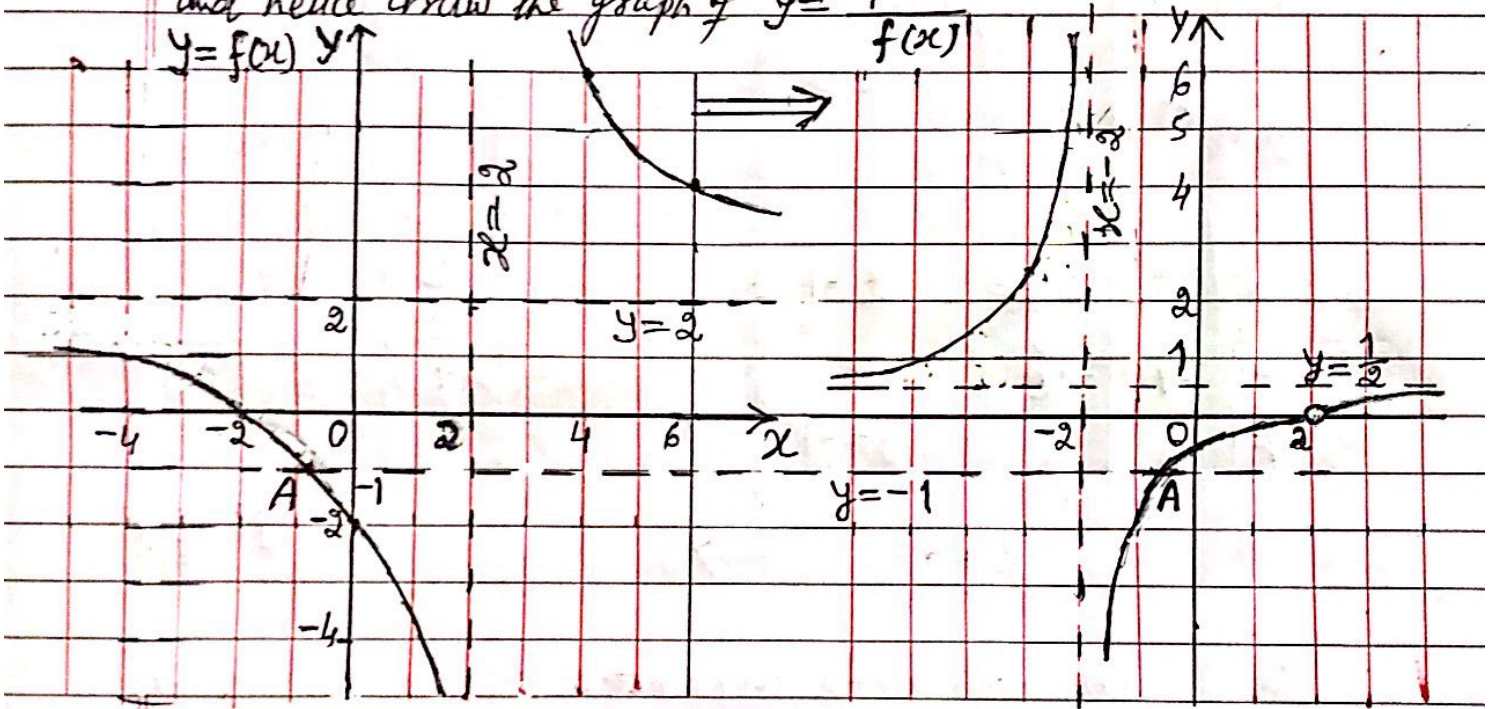 and hence draw the graph of y = 1
f(x)
y = f(x) y
x = 2
2
y = 2
-4 -2 0 2 4 6 x
A -1
-2
-4
y
6
5
x = -2
4
2
1
y = 1/2
-2 0 2
y = -1 A